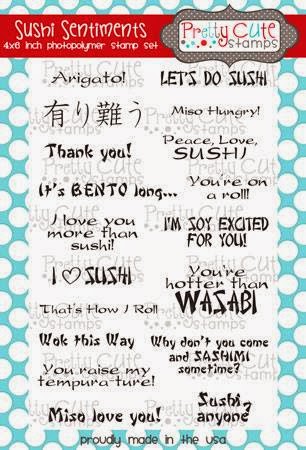 Sushi Sentiments
4x6 inch photopolymer stamp set
Pretty Cute
Stamps
Arigato!
LET'S DO SUSHI
有り難う
Miso Hungry!
Thank you!
Peace, Love,
SUSHI
It's BENTO long...
You're on
a roll!
I love you
more than
sushi!
I'M SOY EXCITED
FOR YOU!
I ♡ SUSHI
You're
hotter than
WASABI
That's How I Roll
Wok this Way
Why don't you come
and SASHIMI
sometime?
You raise my
tempura-ture!
Miso love you!
Sushi
anyone?
proudly made in the usa